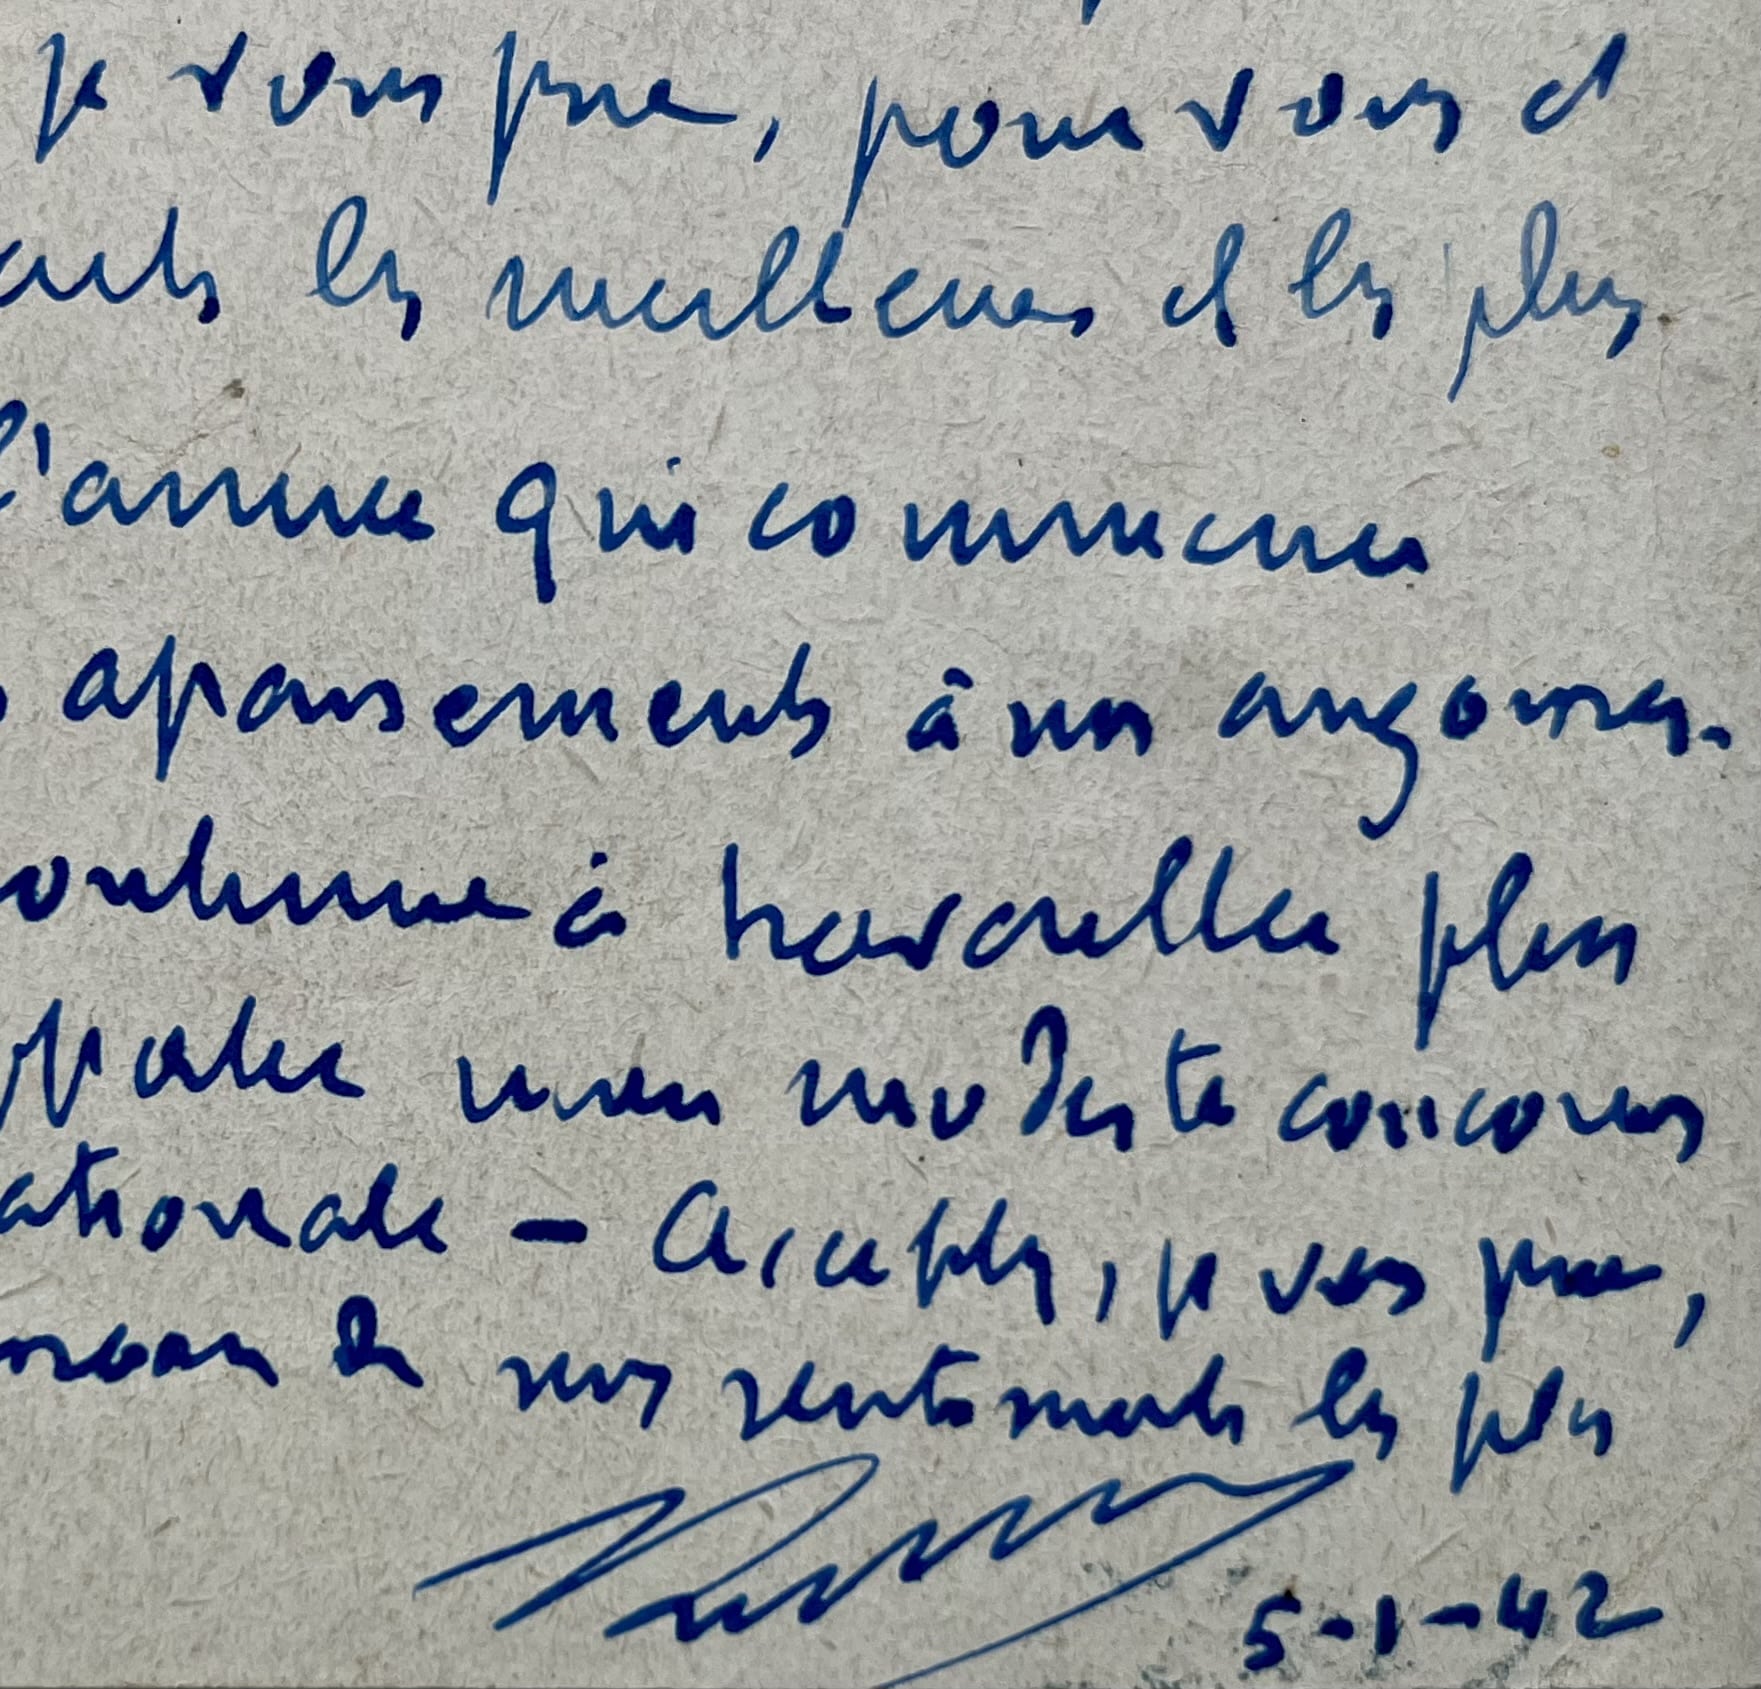 je vous prie, pour vous et
les meilleurs et les plus
l'année qui commence
apaisements à nos angoisses.
continue à travailler plus
mon modeste concours
nationale - Acceptez, je vous prie,
de mes sentiments les plus
5-1-42